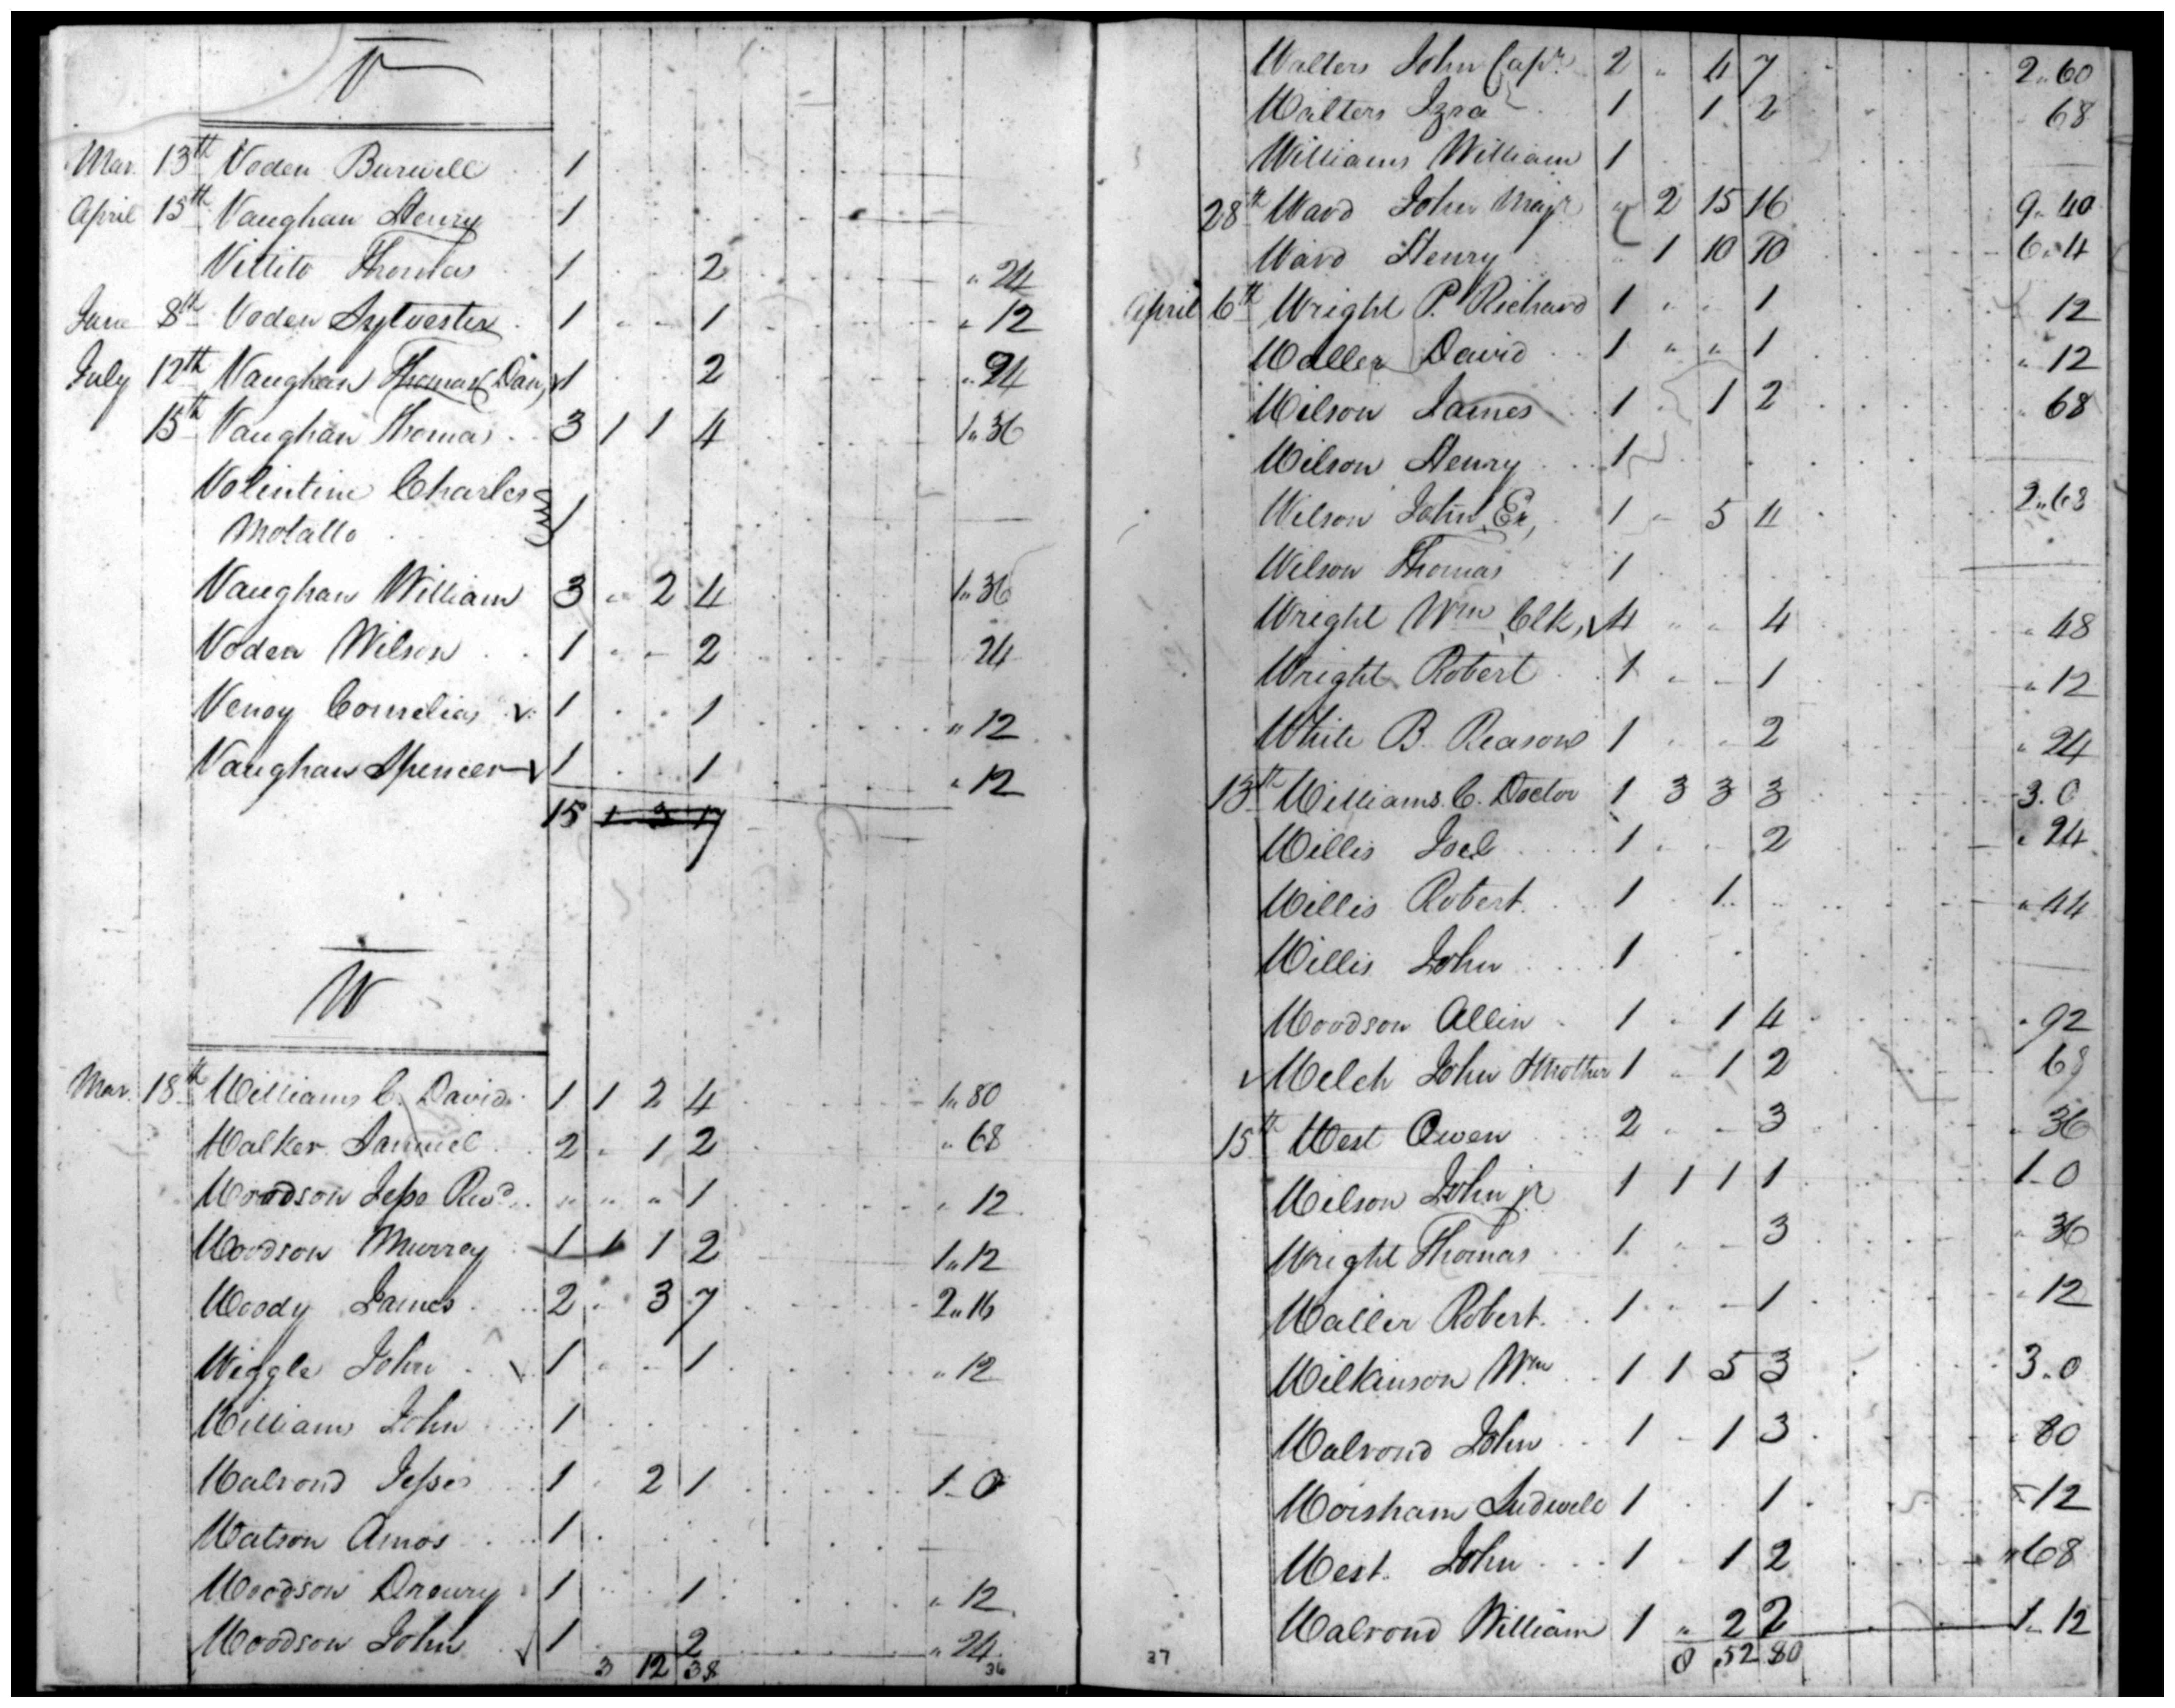 V
Mar. 13th Voden Burwell 1
April 15th Vaughan Henry 1
Villito Thomas 1 2 " 24
June 8th Voden Sylvester 1 1 " 12
July 12th Vaughan Thomas (Dan) 1 2 " 24
15th Vaughan Thomas 3 1 1 4 1 " 36
Volintine Charles
Molatto 1
Vaughan William 3 " 2 4 1 " 36
Voden Wilson 1 2 24
Venoy Cornelias 1 1 " 12
Vaughan Spencer 1 1 " 12
15 1 3 17
W
Mar. 18th Williams C. David 1 1 2 4 1 " 80
Walker Samuel 2 " 1 2 " 68
Woodson Jesse Revd " " " 1 " 12
Woodson Murrey 1 1 1 2 1 " 12
Woody James 2 3 7 2 " 16
Wiggle John 1 1 " 12
Williams John 1
Walrond Jesse 1 2 1 1 - 0
Watson Amos 1
Woodson Drewry 1 1 " 12
Woodson John 1 2 " 24
3 12 38 36
Walters John Capt. 2 " 4 7 2 " 60
Walters Izra 1 1 2 68
Williams William 1
28th Ward John Majr " 2 15 16 9 " 40
Ward Henry " 1 10 10 6 " 4
April 6th Wright P. Richard 1 " " 1 12
Waller David 1 " " 1 " 12
Wilson James 1 1 2 68
Wilson Henry 1
Wilson John 1 5 4 2 " 68
Wilson Thomas 1
Wright Wm Clk, 4 " " 4 " 48
Wright Robert 1 1 " 12
White B. Reason 1 2 " 24
13th Williams C. Doctor 1 3 3 3 3 . 0
Willis Joel 1 2 " 24
Willis Robert 1 1 " 44
Willis John 1
Woodson Allin 1 1 4 " 92
Welch John 1 " 1 2 68
15th West Owen 2 3 36
Wilson John jr 1 1 1 1 1 - 0
Wright Thomas 1 3 " 36
Waller Robert 1 1 " 12
Wilkinson Wm 1 1 5 3 3 . 0
Walrond John 1 1 3 80
Worsham Ludwell 1 1 12
West John 1 1 2 " 68
Walrond William 1 " 2 2 1 " 12
37 0 52 80